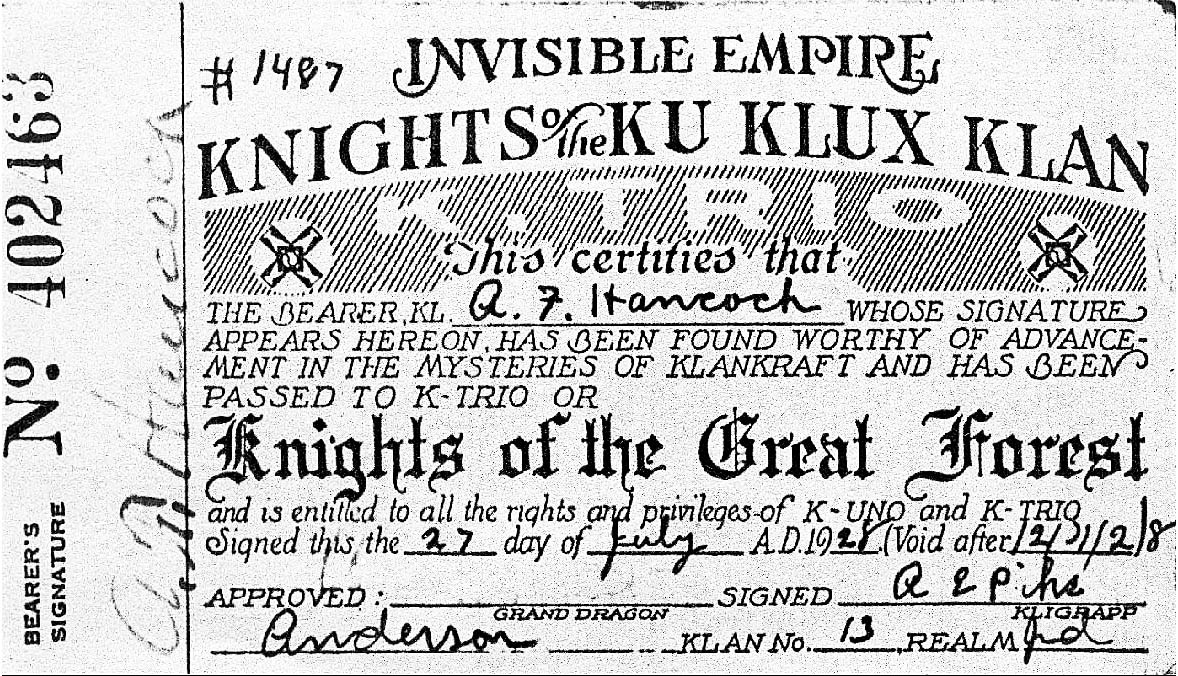 No. 402463
BEARER'S
SIGNATURE
A. F. Hancock
# 1487
INVISIBLE EMPIRE
KNIGHTS of the KU KLUX KLAN
K. TRIO
This certifies that
THE BEARER, KL. A. F. Hancock WHOSE SIGNATURE
APPEARS HEREON, HAS BEEN FOUND WORTHY OF ADVANCE-
MENT IN THE MYSTERIES OF KLANKRAFT AND HAS BEEN
PASSED TO K-TRIO OR
Knights of the Great Forest
and is entitled to all the rights and privileges of K-UNO and K-TRIO
Signed this the 27 day of July A.D. 1928. (Void after 12/31/28
APPROVED: SIGNED
GRAND DRAGON KLIGRAPP
Anderson KLAN No. 13, REALM Ind